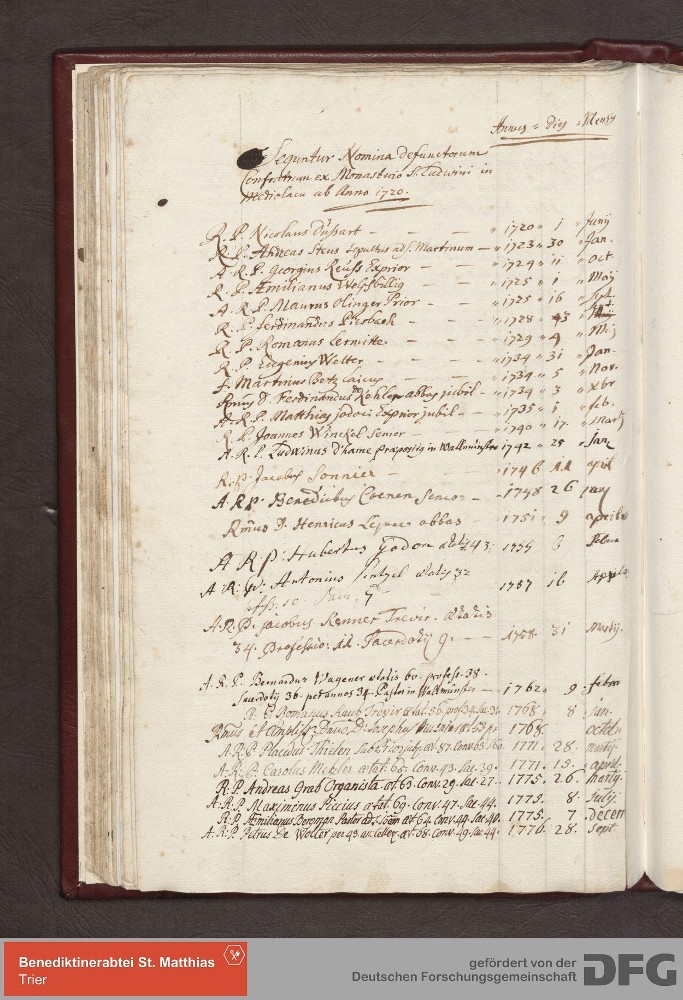 Annus = Dies = Mensis
Sequntur Nomina defunctorum
Confratrum ex Monasterio S. Ludwini in
Mediolacu ab Anno 1720.
R. P. Nicolaus Düssart — — — " 1720 " 1 " Junij
R. P. Andreas Steus sepultus ad S. Martinum — " 1723 " 30 " Jan.
A. R. P. Georgius Reuss Exprior — — " 1724 " 11 " oct
R. P. Æmilianus Welschbillig — — " 1725 " 1 " Maij
A. R. P. Maurus Olinger Prior — — " 1725 " 16 " Sept.
R. P. Ferdinandus Piesbach — — " 1728 " 13
R. P. Romanus Lermitte — — — " 1729 " 4 " Maij
R. P. Eugenius Welter — — — " 1734 " 31 " Jan.
f. Martinus Betz Laicus — — — " 1734 " 5 " Nov.
Rmus D. Ferdinandus Köhler abbas jubil — " 1734 " 3 " xbr
A. R. P. Matthias Jodoci Exprior jubil — — " 1735 " 1 " feb.
R. P. Joannes Winckel Senior — — " 1740 " 17 " Martij
A. R. P. Ludwinus d'hame Præpositus in Wallmünster 1742 " 25 " Jan
R. P. Jacobus Sonnier — — — 1746 11 april
A. R. P. Benedictus Coenen Senior — 1748 26 Janij
Rmus D. Henricus abbas — 1751 9 aprilis
A. R. P. Hubertus Godon ætatis 43 1755 6
A. R. P. Antonius ætatis 32 1757 16 Aprilis
10 7
A. R. P. Jacobus Kenner Trevir. ætatis
34. Professio: 11. Sacerdotij 9. — — 1758. 31 Martij.
A. R. P. Bernardus Wagener ætatis 60. profess. 38.
Sacerdotij 36. per annos 34. Pastor in Wallmünster — 1762 " 9 " febru
R. P. Romanus Haub Trevir ætat. 56. prof. 34. Sac. 31. 1768. 8 Jan.
Rmus et ampliss. Dnus D. Josephus ætat. 1768. octob
A. R. P. Placidus Thielen Subprior jub. æt. 87. Conv. 63. 60. 1771. 28. martij.
A. R. P. Carolus Metzler ætat. 65. Conv. 43. Sac. 39. 1771. 15. april.
R. P. Andreas Grab Organista æt. 63. Conv. 29. Sac. 27. — 1775. 26 martij.
A. R. P. Maximinus Piccius ætat. 69. Conv. 47. Sac. 44. 1775. 8. Julij.
R. P. Æmilianus Pastor ad S. Joan æt. 64. Conv. 44. Sac. 40. 1775. 7 decem
A. R. P. Petrus De Wolter per 43. an. Celler. æt. 68. Conv. 49. Sac. 44. 1776. 28. Sept.
Benediktinerabtei St. Matthias
Trier
gefördert von der
Deutschen Forschungsgemeinschaft DFG